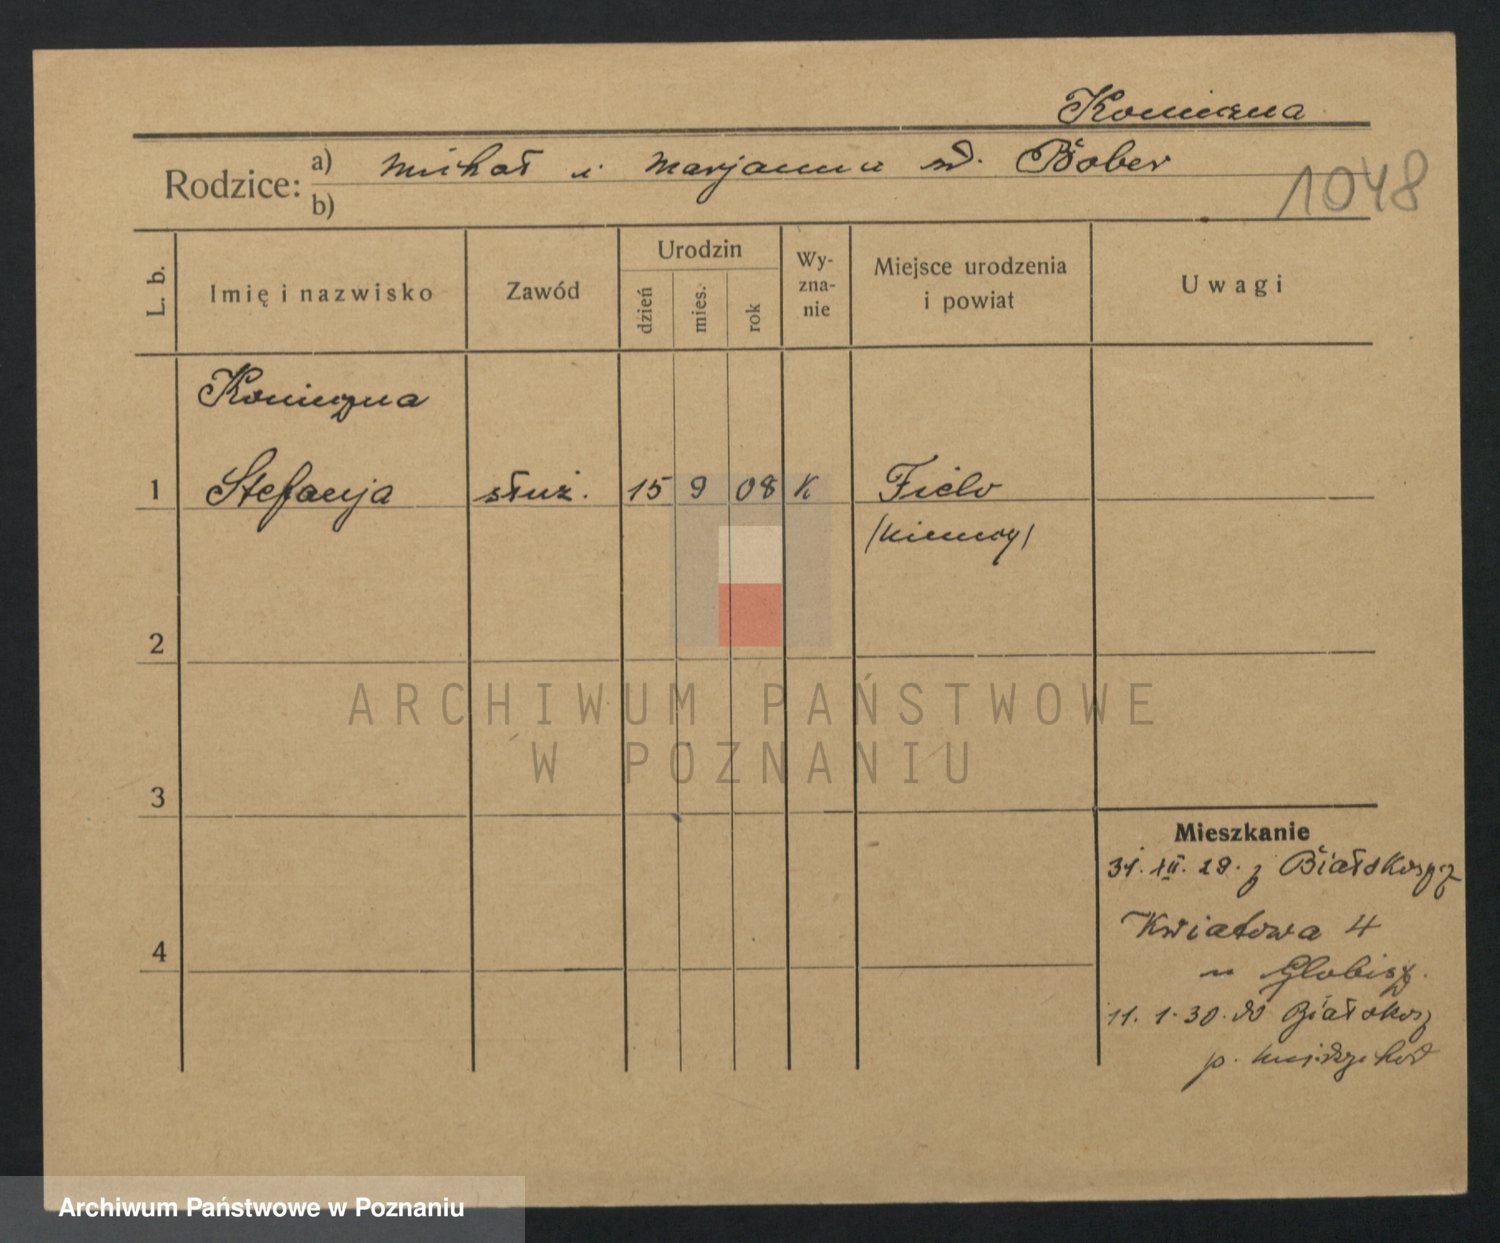 Konieczna
Rodzice: a) Michał i Marjanna zd. Bober
b)
1048
L. b. Imię i nazwisko Zawód Urodzin dzień mies. rok Wy-zna-nie Miejsce urodzenia i powiat Uwagi
Konieczna
1 Stefanja służ. 15 9 08 K Fielo
(Niemcy)
2
3
4
Mieszkanie
31. XII. 29. z Białokosz
Kwiatowa 4
u Globisz.
11. 1. 30. do Białokosz
p. Międzychód
ARCHIWUM PAŃSTWOWE
W POZNANIU
Archiwum Państwowe w Poznaniu